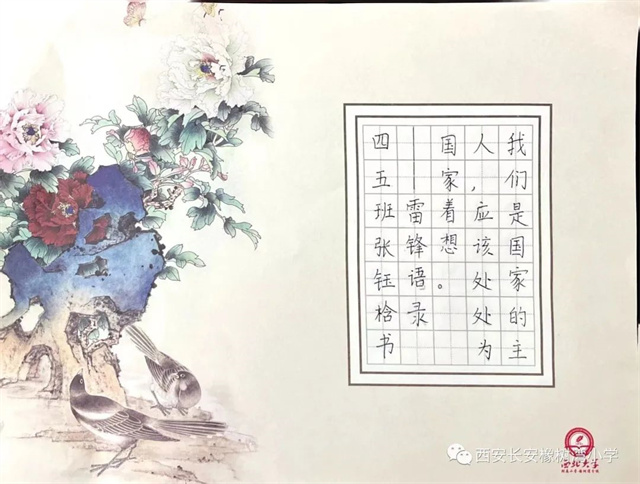 我们是国家的主
人，应该处处为
国家着想。
——雷锋语录
四五班张钰晗书
西安长安橡树街小学
西北大学